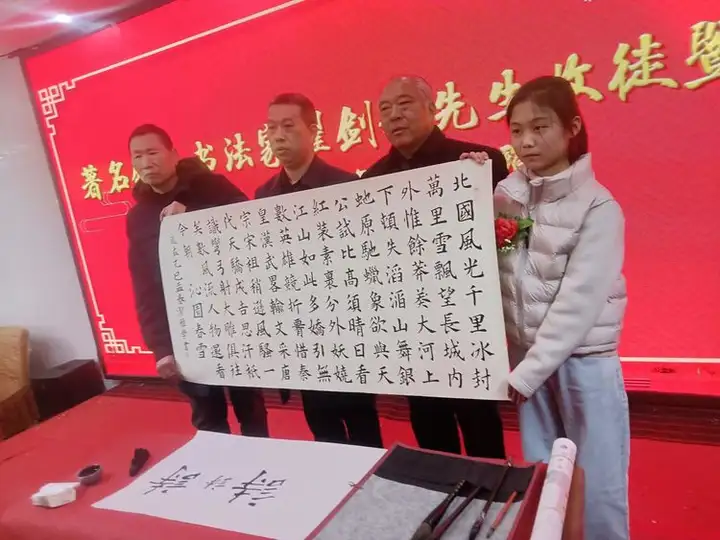 著名
书法家
剑
先生收徒暨
北國風光千里冰封
萬里雪飄望長城内
外惟餘莽莾大河上
下頓失滔滔山舞銀
虵原馳蠟象欲與天
公試比高須晴日看
紅裝素裹分外妖嬈
江山如此多嬌引無
數英雄競折腰惜秦
皇漢武畧輸文采唐
宗宋祖稍遜風騷一
代天驕成吉思汗祇
識彎弓射大雕俱往
矣數風流人物還看
今朝 沁園春雪
歲在乙巳孟春
詩
詩